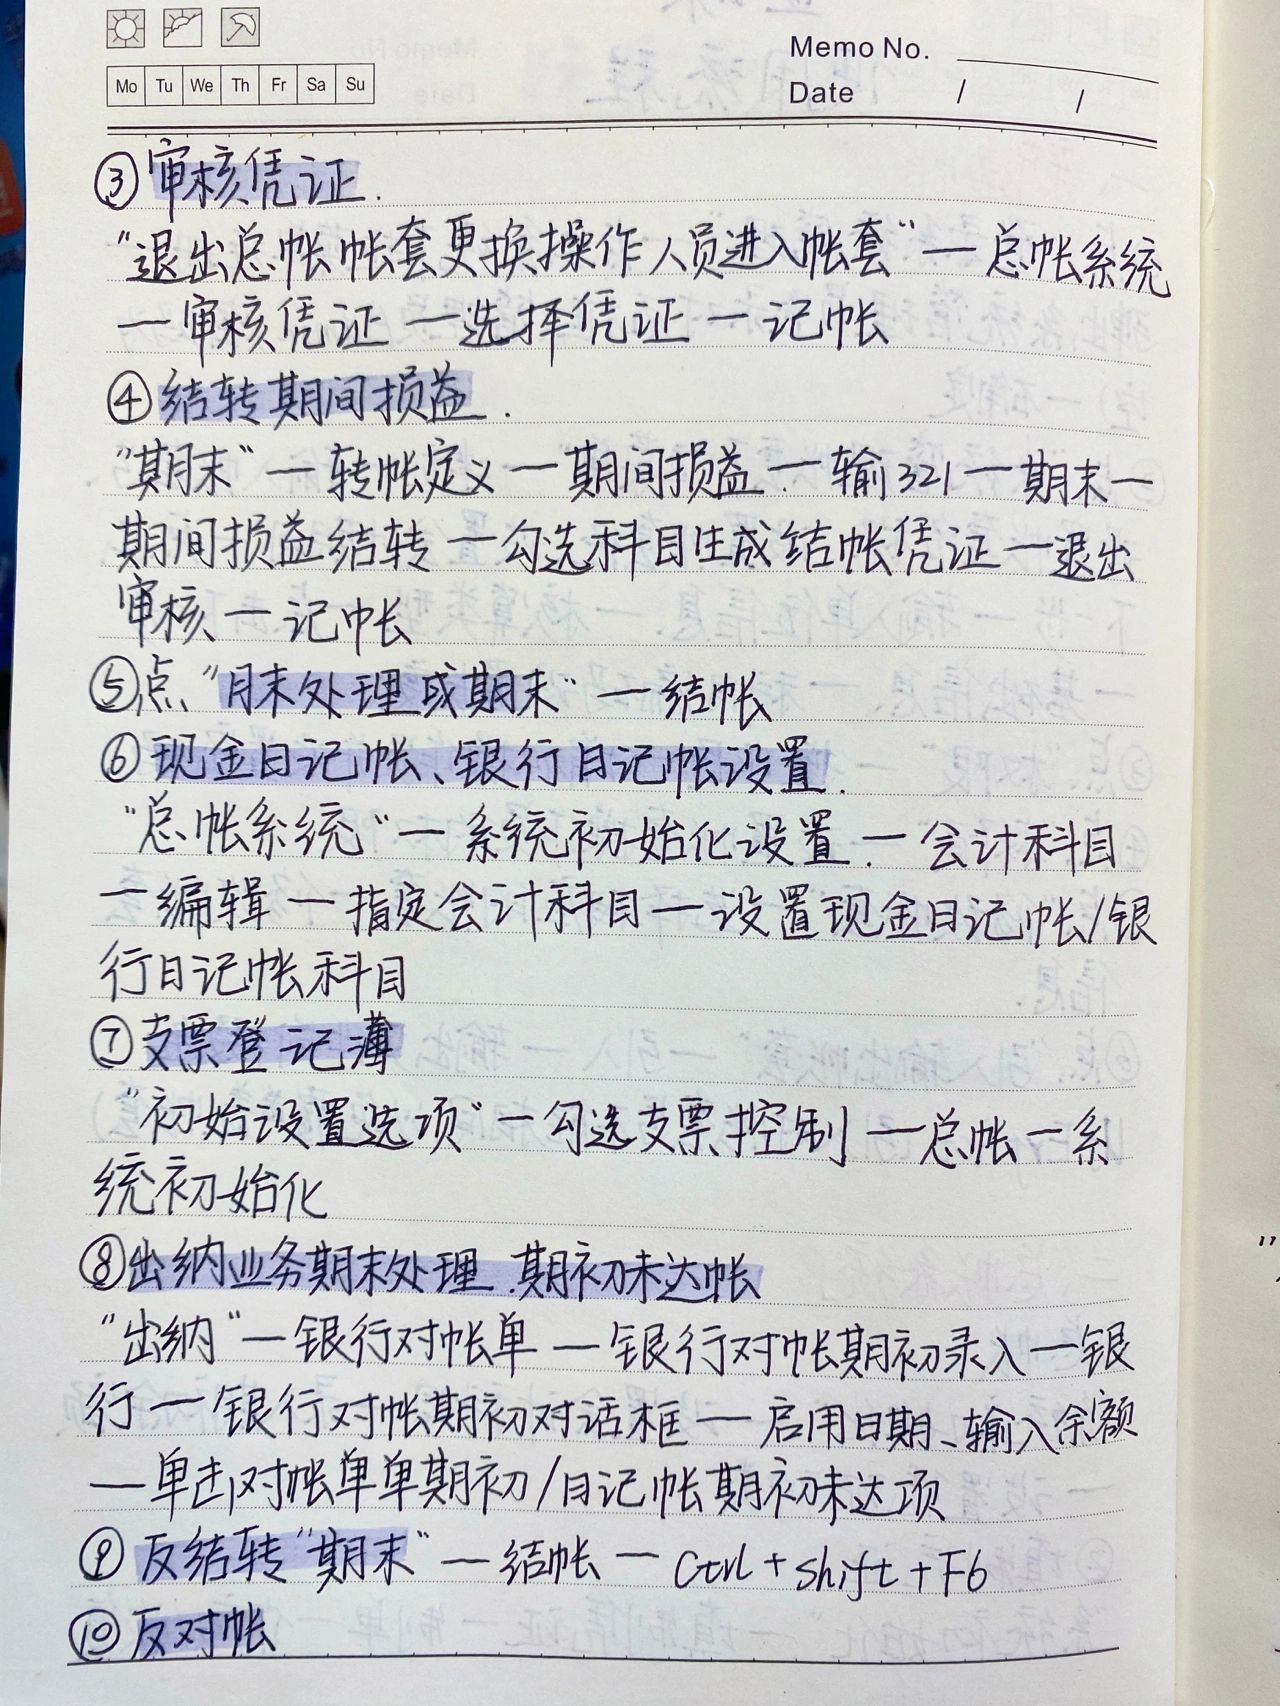 Memo No.
Mo Tu We Th Fr Sa Su
Date / /
③审核凭证.
"退出总帐帐套更换操作人员进入帐套"—总帐系统
—审核凭证—选择凭证—记帐
④结转期间损益.
"期末"—转帐定义—期间损益—输321—期末—
期间损益结转—勾选科目生成结帐凭证—退出
审核—记帐
⑤点"月末处理或期末"—结帐
⑥现金日记帐、银行日记帐设置.
"总帐系统"—系统初始化设置—会计科目
—编辑—指定会计科目—设置现金日记帐/银
行日记帐科目
⑦支票登记薄
"初始设置选项"—勾选支票控制—总帐—系
统初始化
⑧出纳业务期末处理.期初未达帐
"出纳"—银行对帐单—银行对帐期初录入—银
行—银行对帐期初对话框—启用日期、输入余额
—单击对帐单单期初/日记帐期初未达项
⑨反结转"期末"—结帐—Ctrl+shift+F6
⑩反对帐